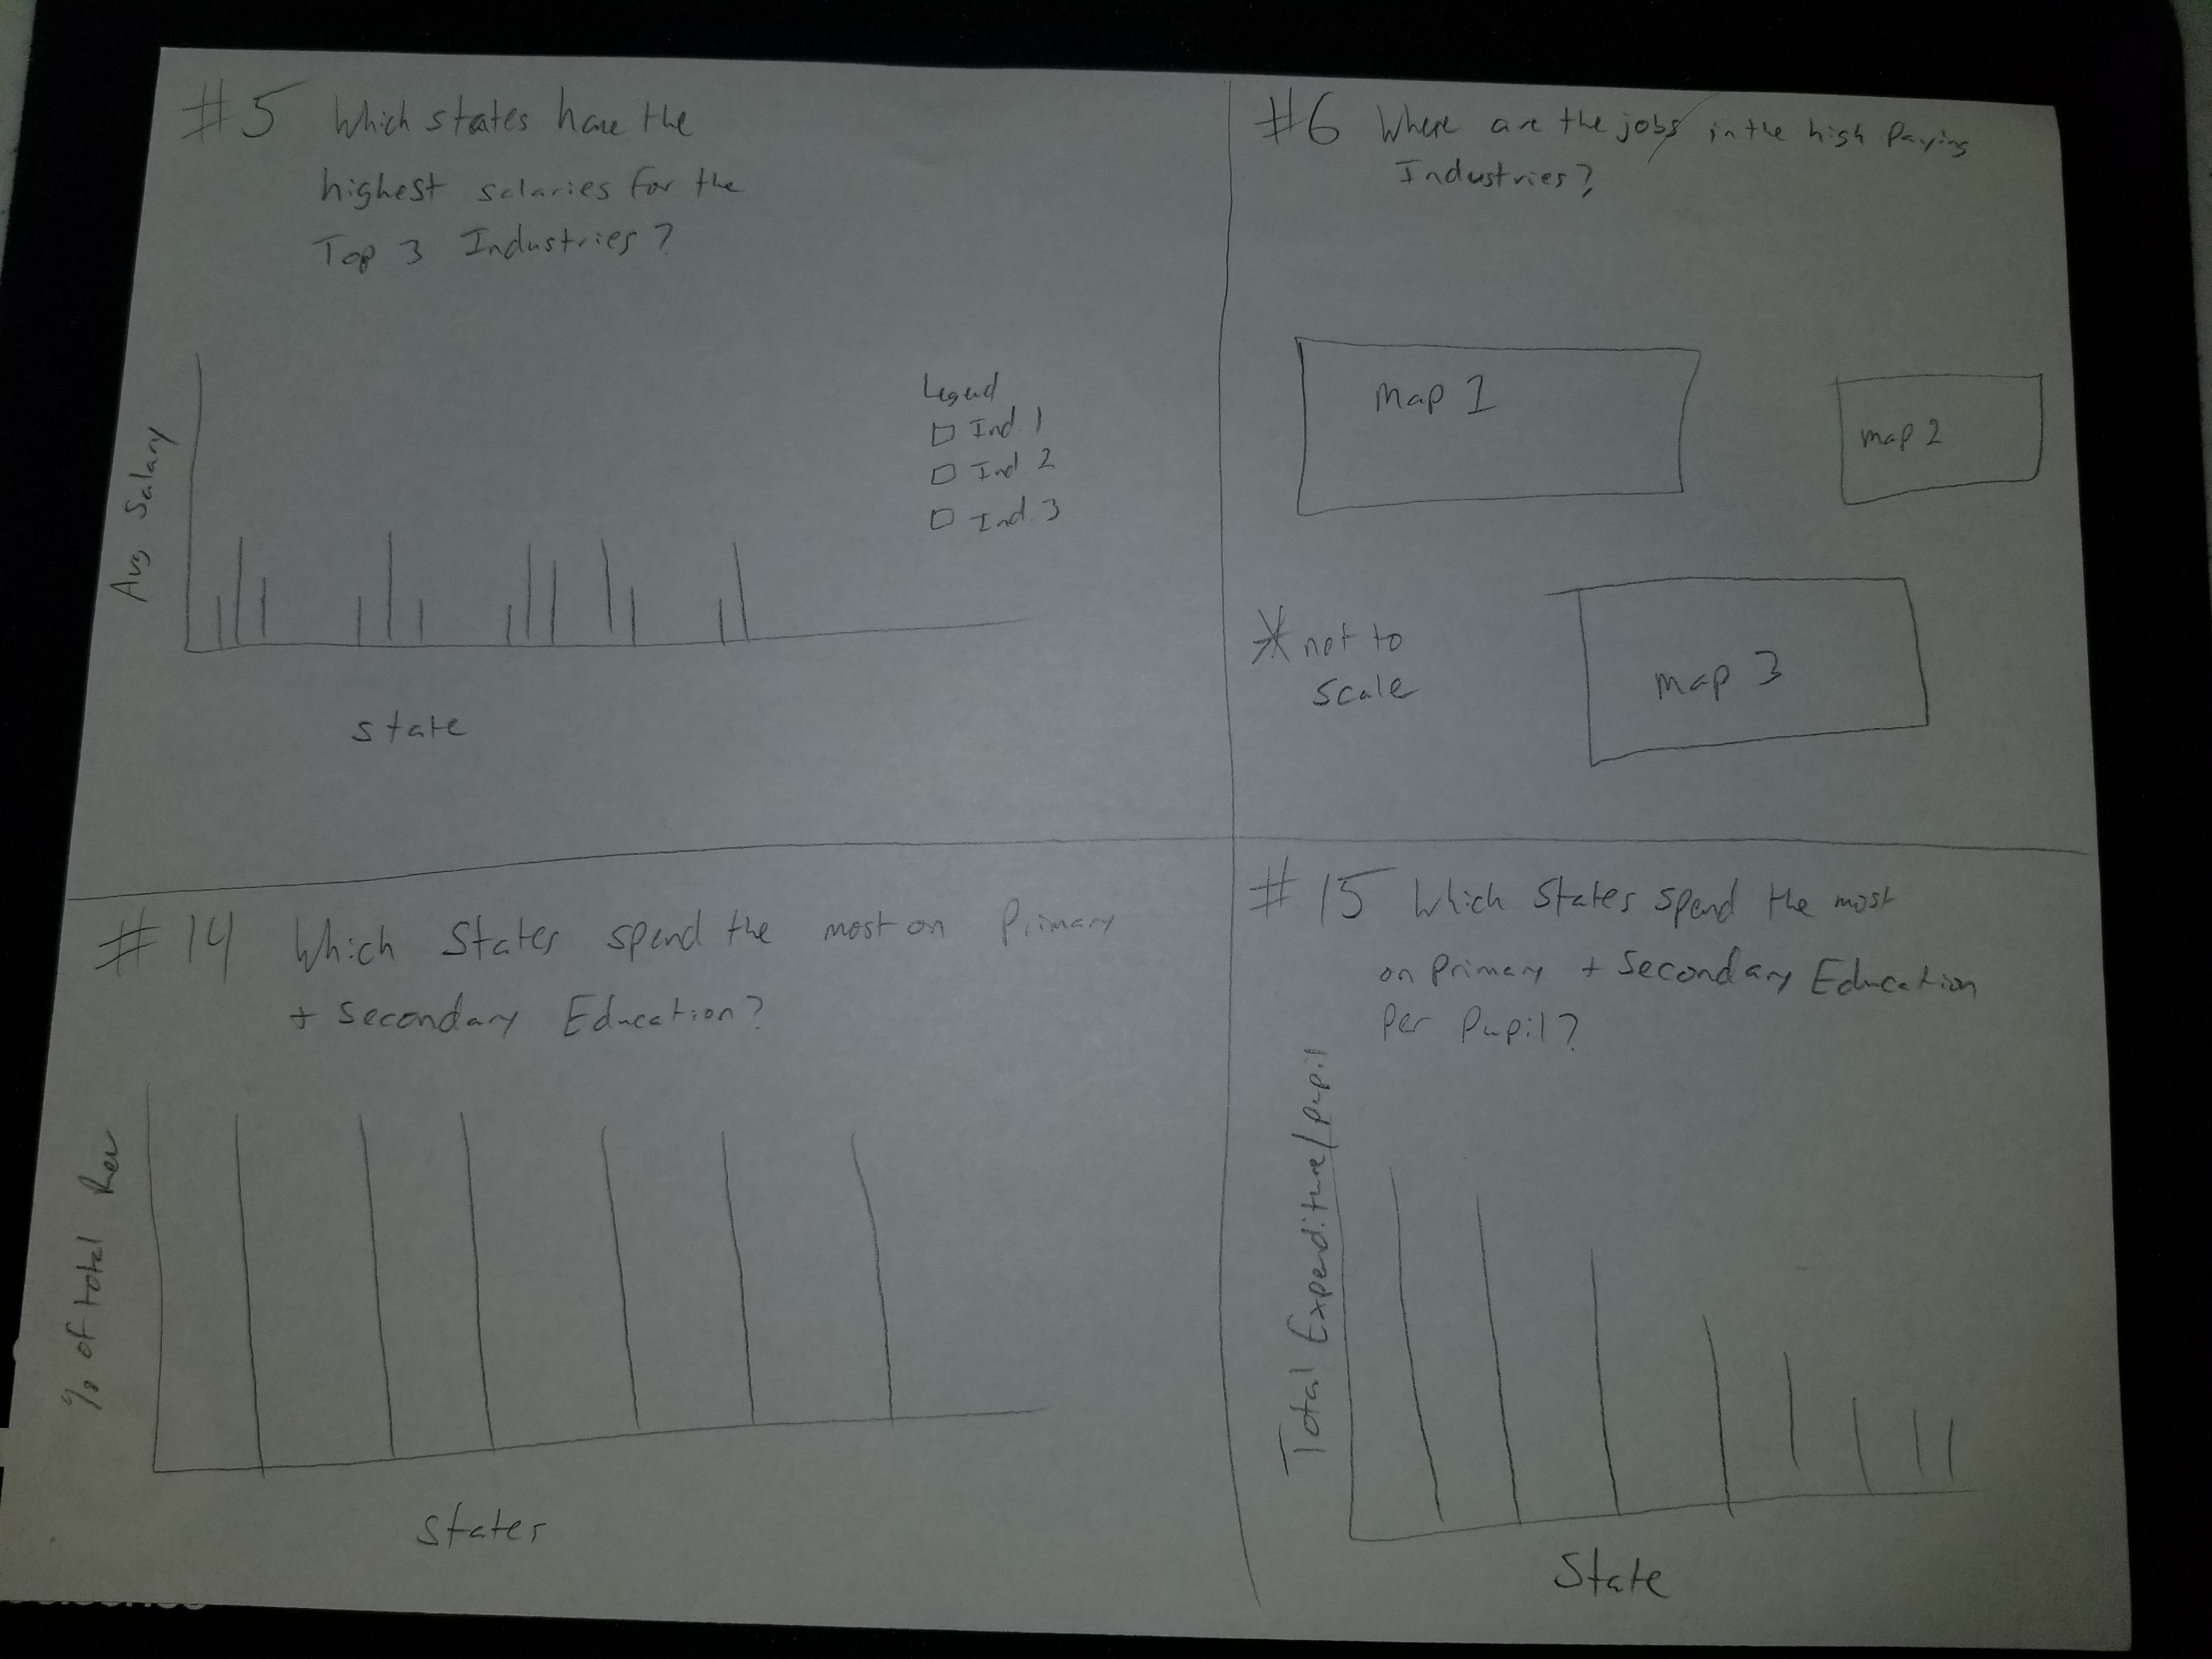 #5 Which states have the
highest salaries for the
Top 3 Industries?
Avg Salary
Legend
Ind. 1
Ind 2
Ind. 3
State
#6 Where are the jobs in the high Paying
Industries?
Map 1
Map 2
Map 3
* not to
scale
#14 Which States spend the most on Primary
+ Secondary Education?
% of total Rev
States
#15 Which States spend the most
on primary + Secondary Education
Per Pupil?
Total Expenditure/pupil
State